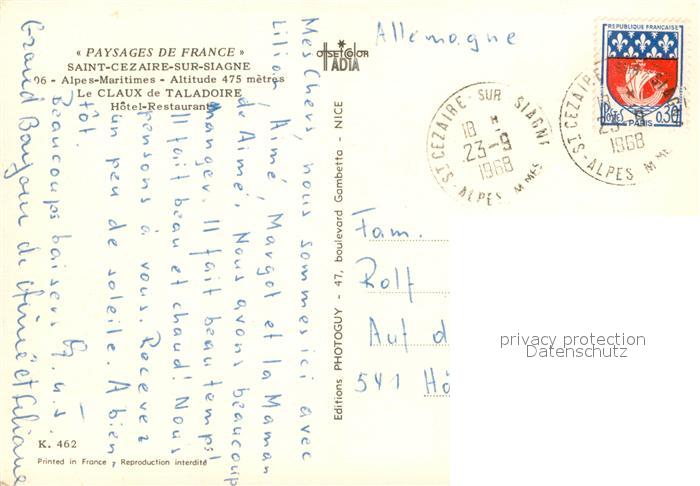 « PAYSAGES DE FRANCE »
SAINT-CEZAIRE-SUR-SIAGNE
06 - Alpes-Maritimes - Altitude 475 mètres
Le CLAUX de TALADOIRE
Hôtel-Restaurant
OFFSET COLOR
TADIA
Allemagne
REPUBLIQUE FRANÇAISE
POSTES
0,30
PARIS
ST-CEZAIRE SUR SIAGNE
18 H
23-9
1968
ST-ALPES MMES
ST-CEZAIRE SUR
23-9
1968
ST-ALPES MMES
Mes Chers, nous sommes ici avec
Lilion, Aimé, Margot et la Maman
de Aimé. Nous avons beaucoup
manger. Il fait beau temps!
Il fait beau et chaud! Nous
pensons à vous. Recevez
un peu de soleile. A bien-
tôt.
Beaucoups baisers
Grand Bonjour de Aimé et Liliane
Editions PHOTOGUY - 47, boulevard Gambetta - NICE
Fam.
Rolf
Auf d
541 Hö
privacy protection
Datenschutz
K. 462
Printed in France, Reproduction interdite